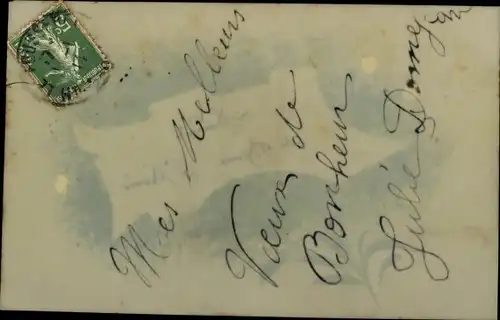 Mes Meilleurs
Vœux de
Bonheur
Julie